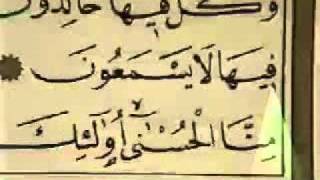 وَكُلٌّ فِيهَا خَالِدُونَ
فِيهَا لَا يَسْمَعُونَ
مِنَّا الْحُسْنٰىۙ أُولٰۤئِكَ